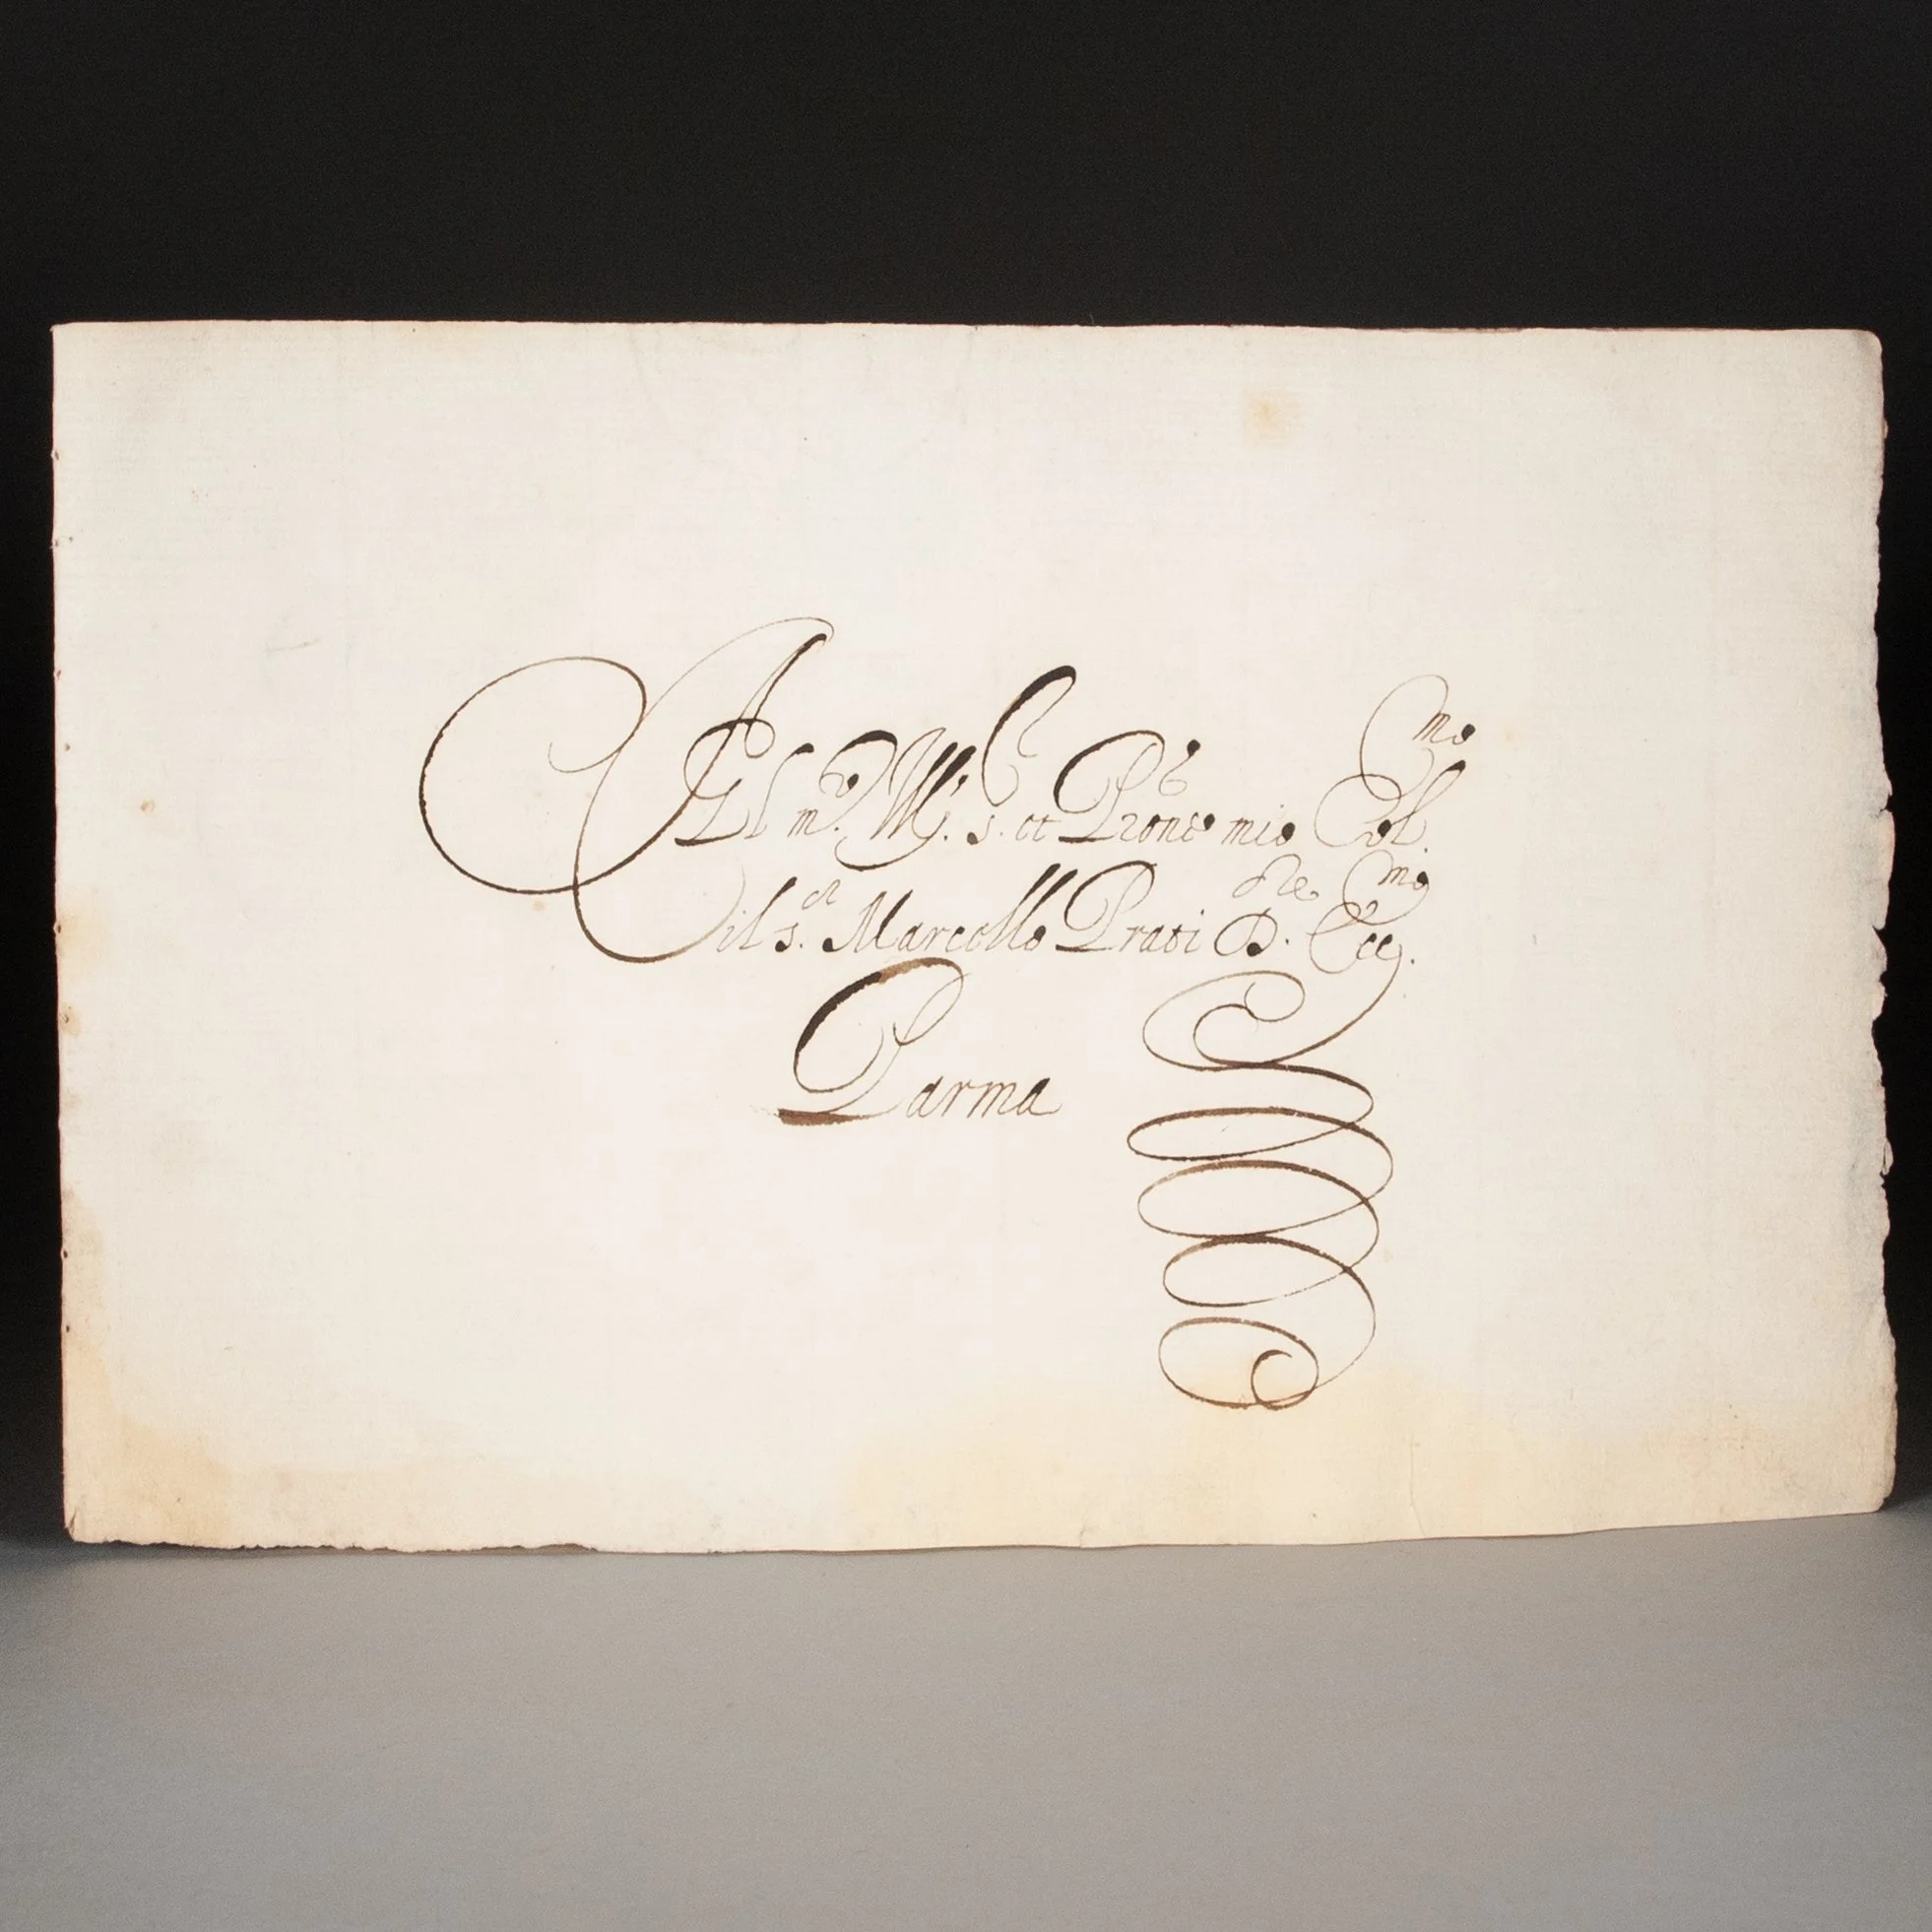 Al m.º Mg.º s.r et Prone mio Col.mo
il s.r Marcello Prati D.re Ecc.mo
Parma